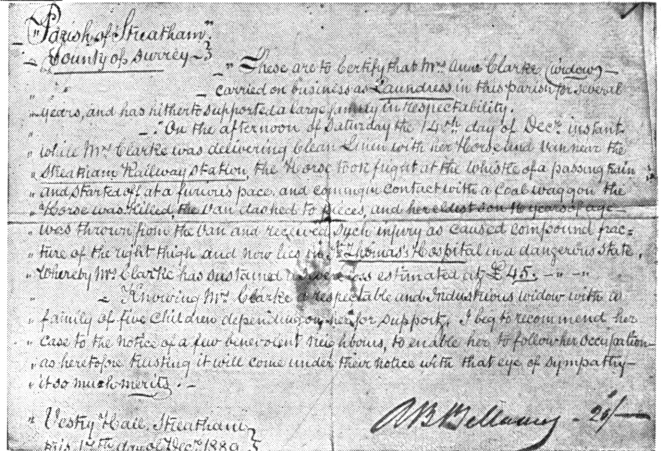 Parish of Streatham
County of Surrey
These are to Certify that Mrs Anne Clarke (widow)
carried on business as Laundress in this parish for several
years, and has hitherto supported a large family in respectability.
On the afternoon of Saturday the 14th day of Decr instant
while Mrs Clarke was delivering Clean Linen with her Horse and Van near the
Streatham Railway Station, the Horse took fright at the whistle of a passing train
and started off at a furious pace, and coming in contact with a Coal waggon the
Horse was killed, the Van dashed to pieces, and her eldest son 16 years of age
was thrown from the Van and received such injury as caused compound frac=
ture of the right thigh and now lies in St Thomas's Hospital in a dangerous state,
whereby Mrs Clarke has sustained loss estimated at £45.
Knowing Mrs Clarke a respectable and Industrious widow with a
family of five Children depending on her for support, I beg to recommend her
case to the notice of a few benevolent neighbours, to enable her to follow her occupation
as heretofore trusting it will come under their notice with that eye of sympathy
it so much merits.
Vestry Hall, Streatham
this 17th day of Decr 1889